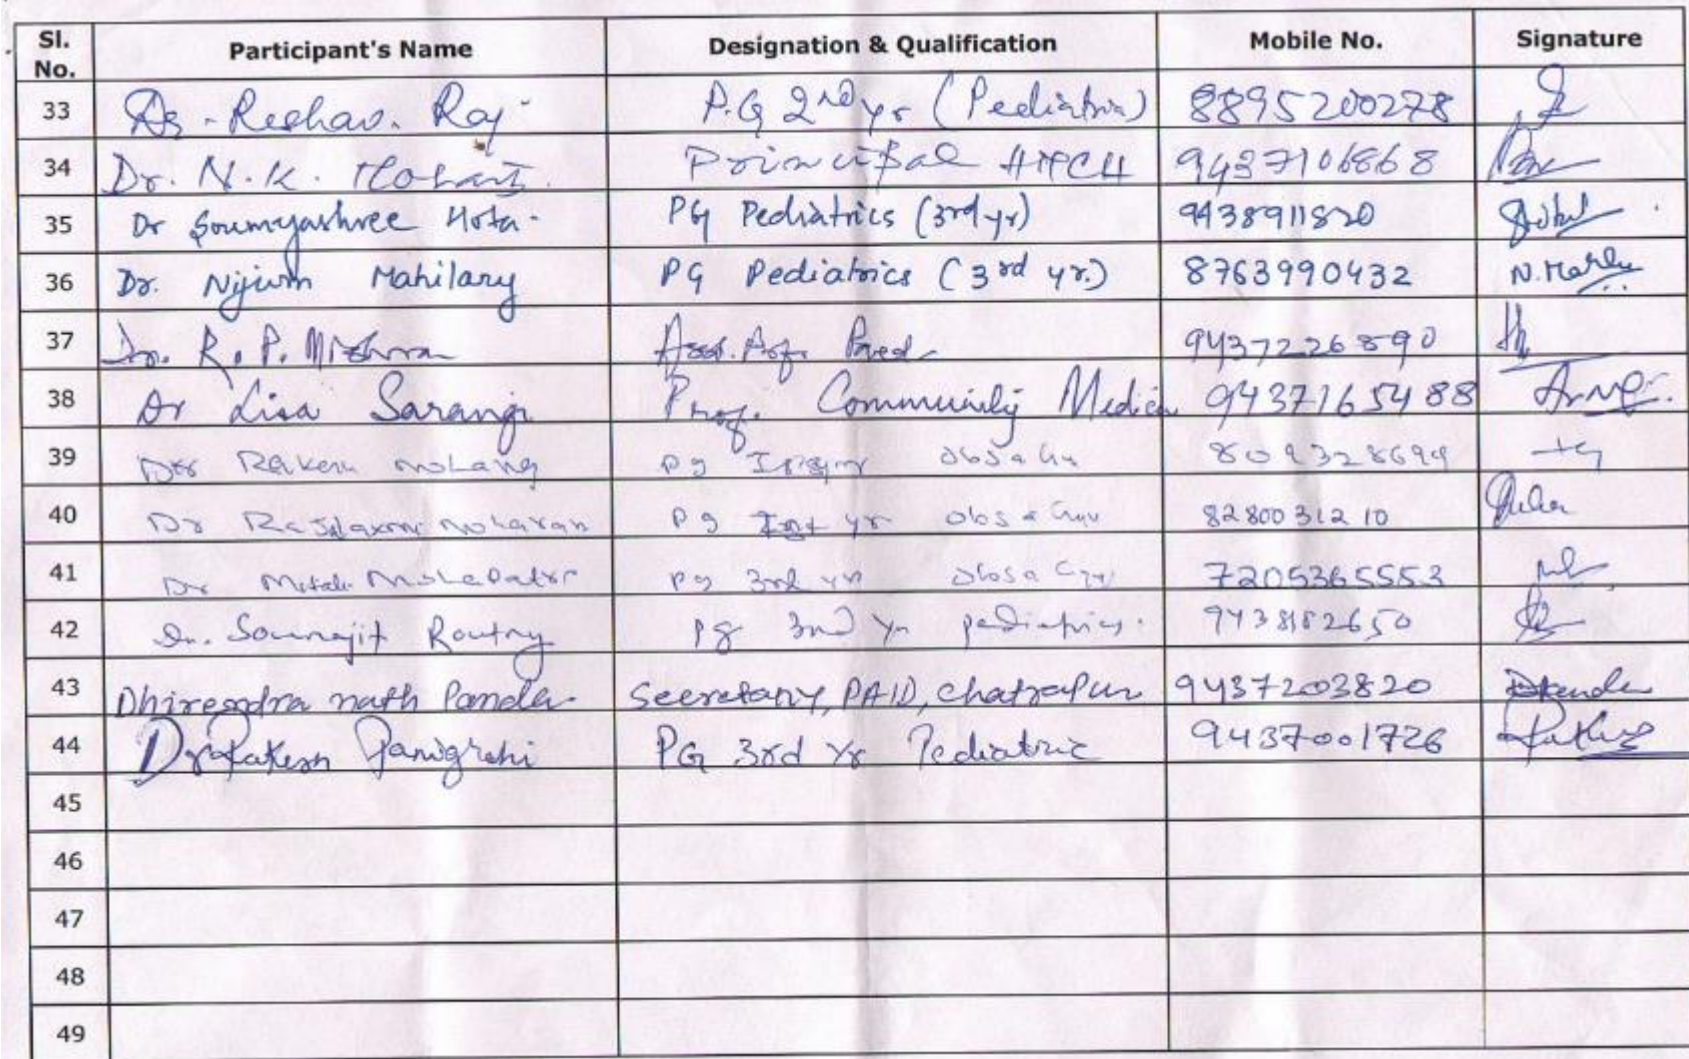 Sl. No. Participant's Name Designation & Qualification Mobile No. Signature
33 Dr. Reshav. Raj P.G 2nd yr (Pediatric) 8895200278
34 Dr. N.K. Mohanty. Principal HMCH 9437106868
35 Dr Soumyashree Hota. PG Pediatrics (3rd yr) 9438911820
36 Dr. Nijwm Mahilary PG Pediatrics (3rd yr.) 8763990432
37 Dr. R.P. Mishra Asst. Prof. Paed. 9437226890
38 Dr Lisa Sarangi Prof. Community Medicin 9437165488
39 Dr Pg
40 Dr Pg yr Obs & Gyn 8280031210
41 Dr Mitali Pg 3rd yr Obs & Gyn 7205365553
42 Dr. Soumajit Routray Pg yr pediatrics.
43 Dhirendra nath Panda. Secretary, PAID, chatrapur 9437203820
44 Dr Rakesh Panigrahi PG 3rd Yr Pediatric 9437001726
45
46
47
48
49